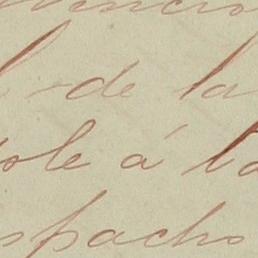 de la
ole á la
spacho